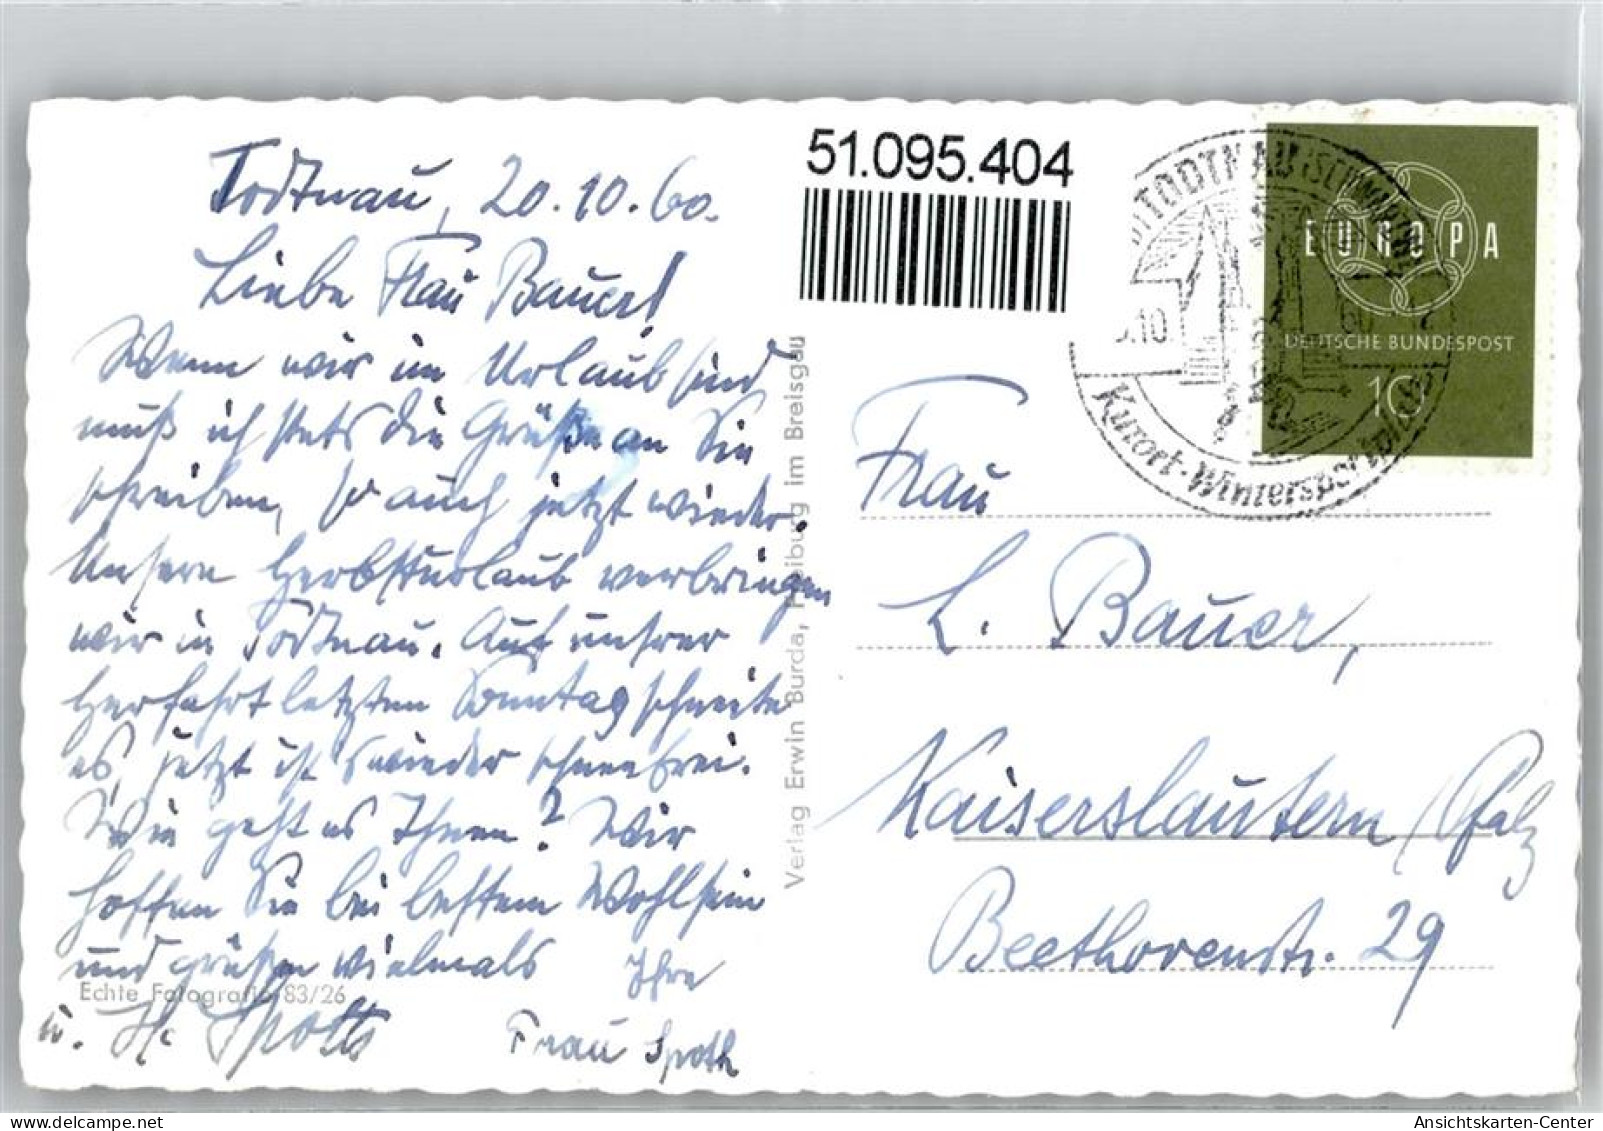 Todtnau, 20.10.60.
Liebe Frau Bauer!
Wenn wir im Urlaub sind,
muß ich stets die Grüße an Sie
schreiben, so auch jetzt wieder.
Unsern Herbsturlaub verbringen
wir in Todtnau. Auf unsrer
Herfahrt letzten Sonntag schneite
es, jetzt ist wieder schneefrei.
Wie geht es Ihnen? Wir
hoffen Sie bei bestem Wohlsein
und grüßen vielmals Ihre
u. H. Spoth Frau Spoth
Echte Fotografie 83/26
Verlag Erwin Burda, Freiburg im Breisgau
51.095.404
TODTNAU (SCHWARZW
.10. 60
Kurort-Wintersportplatz
EUROPA
DEUTSCHE BUNDESPOST
10
Frau
L. Bauer,
Kaiserslautern / Pfalz
Beethovenstr. 29
Ansichtskarten-Center